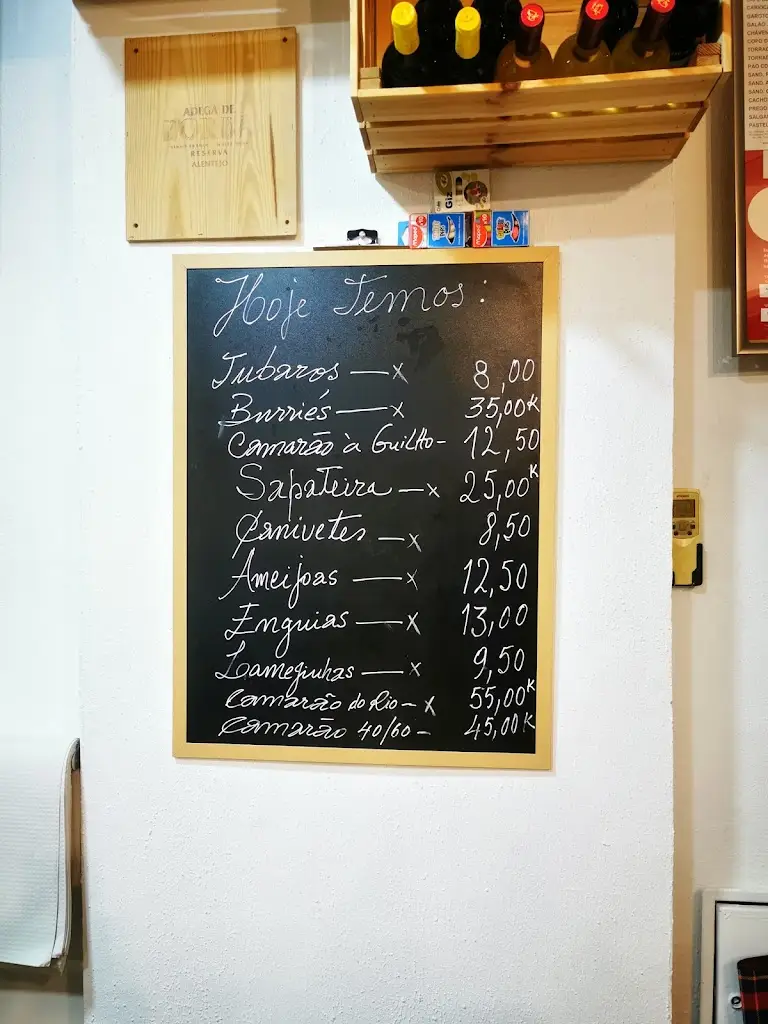 ADEGA DE
BORBA
RESERVA
ALENTEJO
Giz
maped
Hoje Temos:
Tubaros —x 8,00
Burriés —x 35,00K
Camarão à Guilho- 12,50
Sapateira —x 25,00K
Canivetes —x 8,50
Ameijoas —x 12,50
Enguias —x 13,00
Lameginhas —x 9,50
Camarão do Rio -x 55,00K
Camarão 40/60 - 45,00K